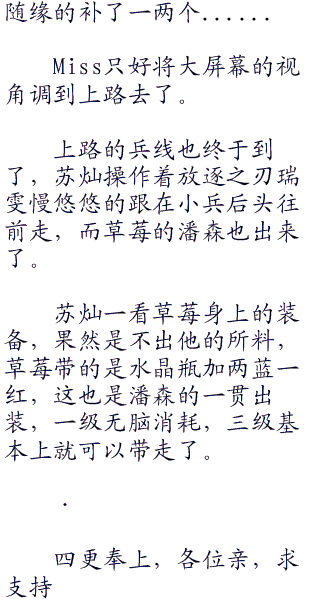 随缘的补了一两个......
Miss只好将大屏幕的视
角调到上路去了。
上路的兵线也终于到
了，苏灿操作着放逐之刃瑞
雯慢悠悠的跟在小兵后头往
前走，而草莓的潘森也出来
了。
苏灿一看草莓身上的装
备，果然是不出他的所料，
草莓带的是水晶瓶加两蓝一
红，这也是潘森的一贯出
装，一级无脑消耗，三级基
本上就可以带走了。
.
四更奉上，各位亲，求
支持